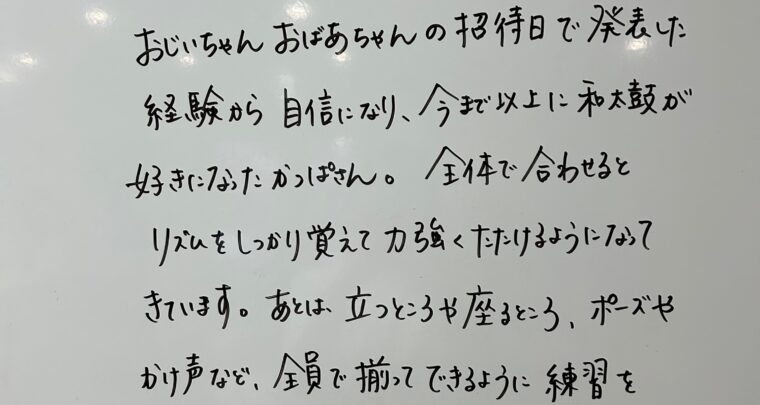 おじいちゃんおばあちゃんの招待日で発表した
経験から自信になり、今まで以上に和太鼓が
好きになったかっぱさん。全体で合わせると
リズムをしっかり覚えて力強くたたけるようになって
きています。あとは、立つところや座るところ、ポーズや
かけ声など、全員で揃ってできるように練習を